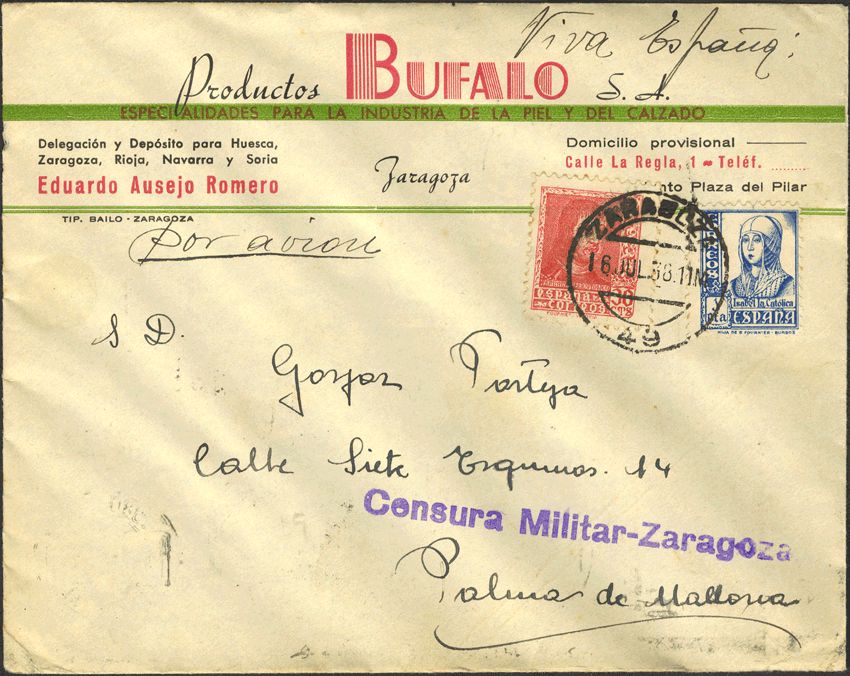 Viva España!
Productos BUFALO S. A.
ESPECIALIDADES PARA LA INDUSTRIA DE LA PIEL Y DEL CALZADO
Delegación y Depósito para Huesca,
Zaragoza, Rioja, Navarra y Soria
Eduardo Ausejo Romero
Zaragoza
Domicilio provisional
Calle La Regla, 1 ~ Teléf.
nto Plaza del Pilar
TIP. BAILO - ZARAGOZA
por avion
ZARAGOZA
16 JUL 38.11M
49
ESPAÑA
CORREOS
30 CTS
CORREOS
Isabel la Católica
pta ESPAÑA
HIJA DE B. FOURNIER - BURGOS
S D.
Gaspar
Calle Siete Esquinas 14
Censura Militar-Zaragoza
Palma de Mallorca